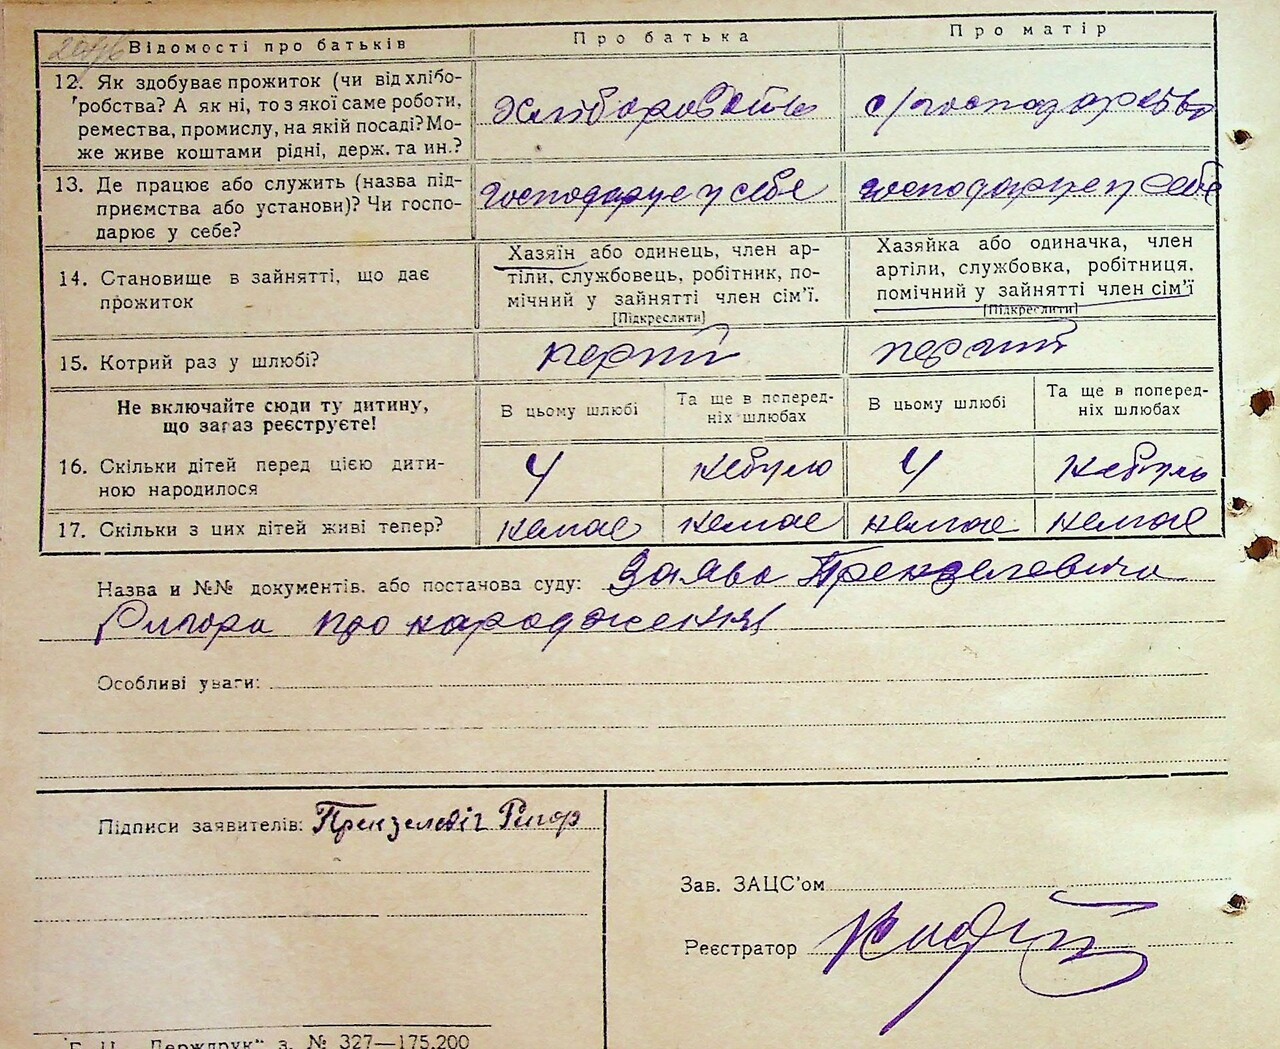 2096 Відомості про батьків Про батька Про матір
12. Як здобуває прожиток (чи від хлібо-
робства? А як ні, то з якої саме роботи,
ремества, промислу, на якій посаді? Мо-
же живе коштами рідні, держ. та ин.?
Хліборобство с/господарство
13. Де працює або служить (назва під-
приємства або установи)? Чи госпо-
дарює у себе?
господарує у себе господарує у себе
14. Становище в зайнятті, що дає
прожиток
Хазяїн або одинець, член ар-
тіли, службовець, робітник, по-
мічний у зайнятті член сім’ї.
[Підкреслити]
Хазяйка або одиначка, член
артіли, службовка, робітниця,
помічний у зайнятті член сім’ї
[Підкреслити]
15. Котрий раз у шлюбі? перший перший
Не включайте сюди ту дитину,
що зараз реєструєте!
В цьому шлюбі
Та ще в поперед-
ніх шлюбах
В цьому шлюбі
Та ще в поперед-
ніх шлюбах
16. Скільки дітей перед цією дити-
ною народилося
4 небуло 4 небуло
17. Скільки з цих дітей живі тепер? немає немає немає немає
Назва и №№ документів. або постанова суду: Заява Прензелевича
Ригора про народження
Особливі уваги:
Підписи заявителів: Прензелевіч Ригор
Зав. ЗАЦС’ом
Реєстратор
„Держдрук“ з. № 327—175.200